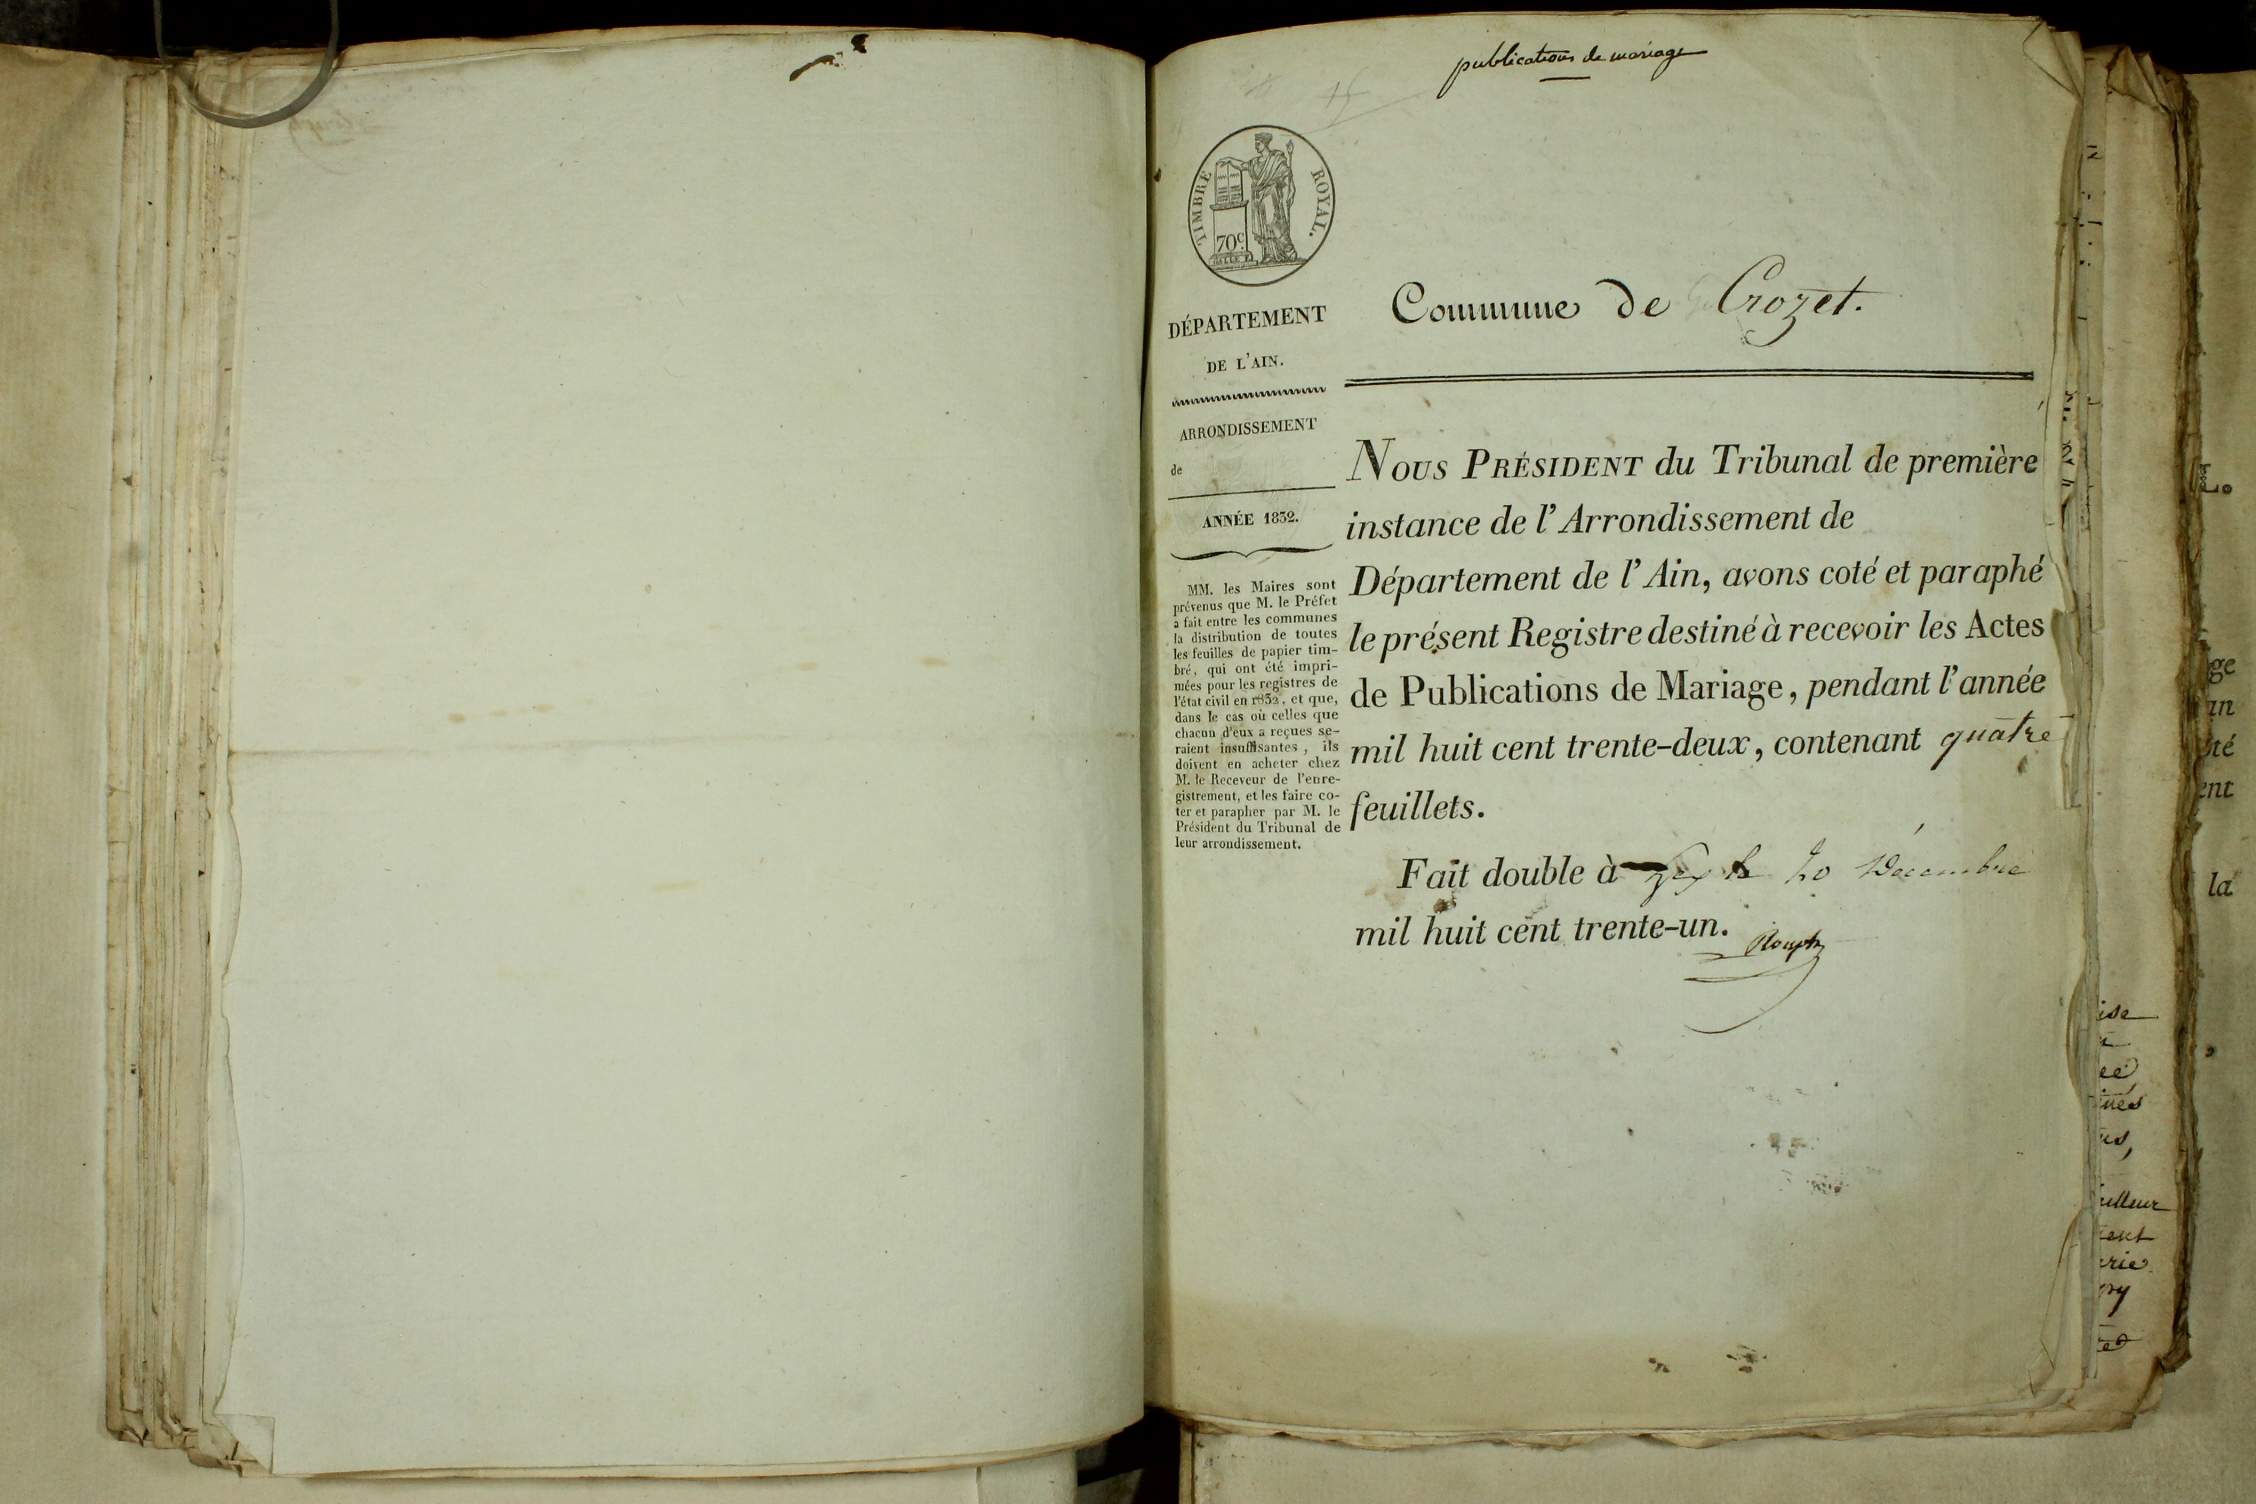 publications de mariage
TIMBRE ROYAL.
70c
DÉPARTEMENT
DE L'AIN.
ARRONDISSEMENT
de
ANNÉE 1832.
MM. les Maires sont
prévenus que M. le Préfet
a fait entre les communes
la distribution de toutes
les feuilles de papier tim-
bré, qui ont été impri-
mées pour les registres de
l'état civil en 1832, et que,
dans le cas où celles que
chacun d'eux a reçues se-
raient insuffisantes, ils
doivent en acheter chez
M. le Receveur de l'enre-
gistrement, et les faire co-
ter et parapher par M. le
Président du Tribunal de
leur arrondissement.
Commune de Crozet.
NOUS PRÉSIDENT du Tribunal de première
instance de l'Arrondissement de
Département de l'Ain, avons coté et paraphé
le présent Registre destiné à recevoir les Actes
de Publications de Mariage, pendant l'année
mil huit cent trente-deux, contenant quatre
feuillets.
Fait double à Gex le 20 Décembre
mil huit cent trente-un.